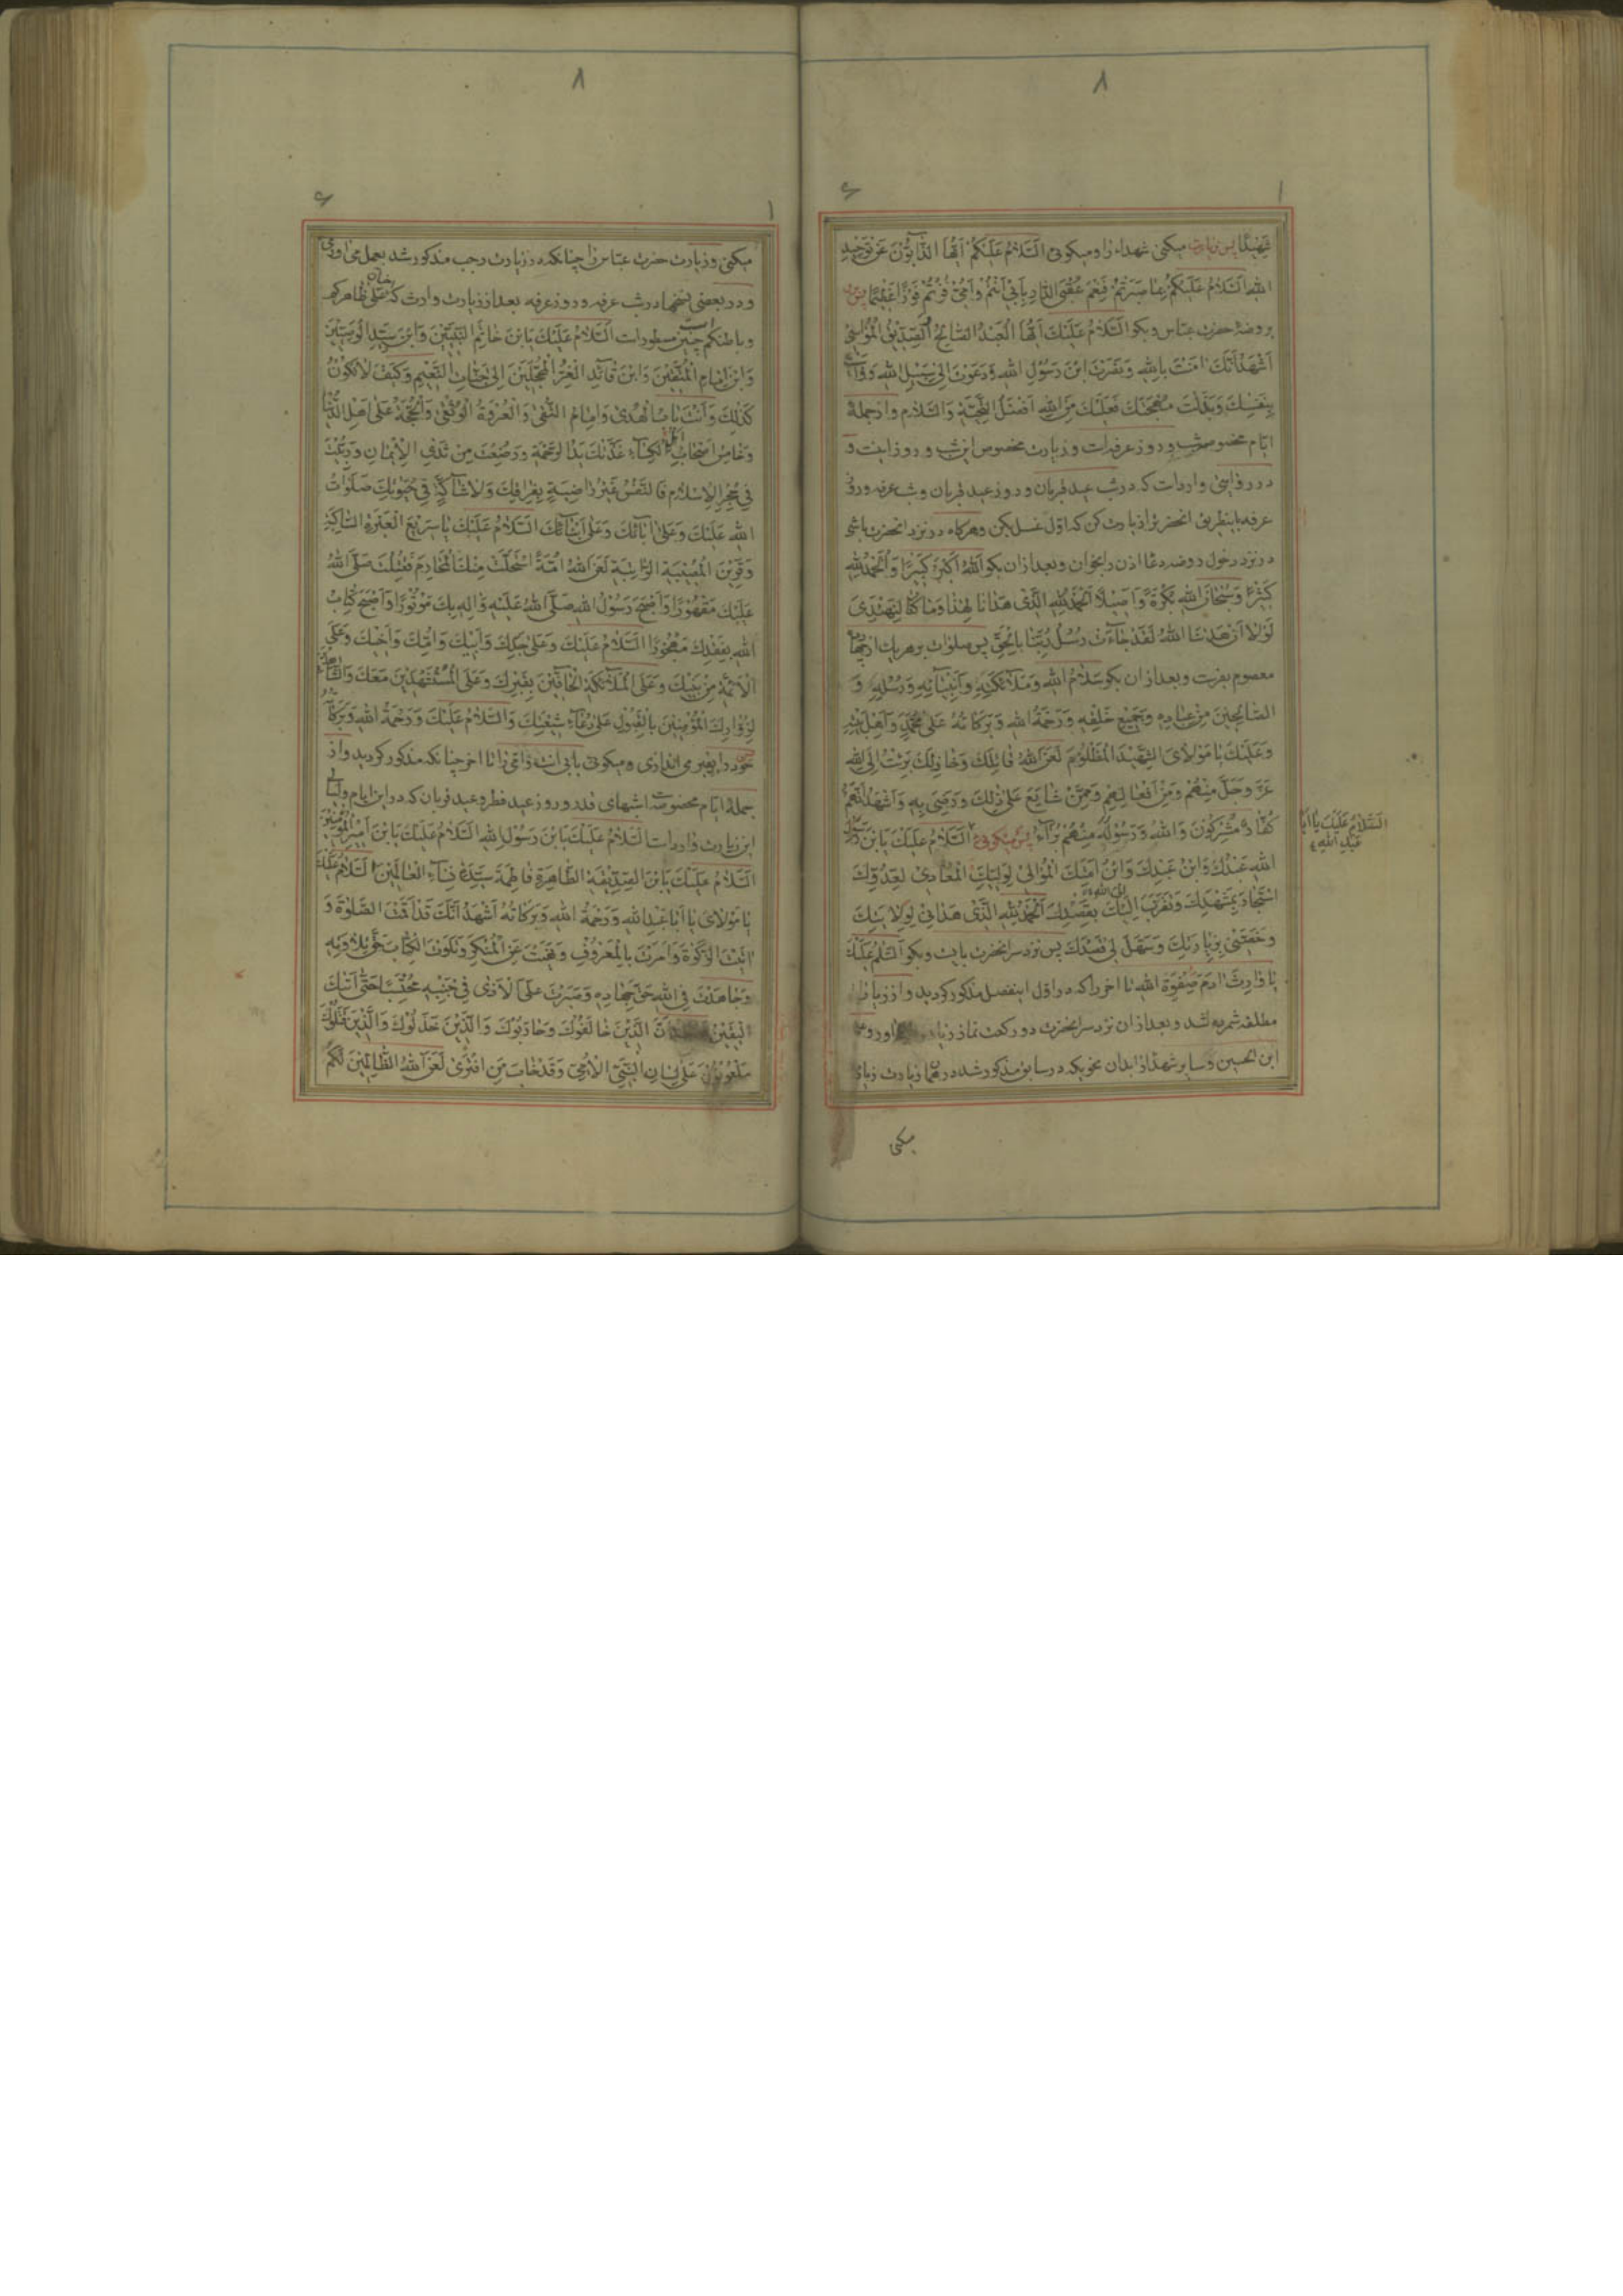 ۸
۶
۱
شَهْبَدًا پس زیارت میکنی شهداء را و میکوئی اَلسَّلامُ عَلَیْکُمْ اَیُّهَا الذَّابُّوْنَ عَنْ تَوْحِیْدِ
اللهِ اَلسَّلامُ عَلَیْکُمْ بِمَا صَبَرْتُمْ فَنِعْمَ عُقْبَی الدَّارِ بِاَبِیْ اَنْتُمْ وَاُمِّیْ فُزْتُمْ فَوْزًا عَظِیْمًا پس
بروضهٔ حضرت عباس و بکو اَلسَّلامُ عَلَیْکَ اَیُّهَا الْعَبْدُ الصَّالِحُ الْصِدِّیْقُ الْمُوَاسِیْ
اَشْهَدُ اَنَّکَ اٰمَنْتَ بِاللهِ وَنَصَرْتَ ابْنَ رَسُوْلِ اللهِ وَدَعَوْتَ اِلٰی سَبِیْلِ اللهِ وَوَاسَیْتَ
بِنَفْسِکَ وَبَذَلْتَ مُهْجَتَکَ فَعَلَیْکَ مِنَ اللهِ اَفْضَلُ التَّحِیَّةِ وَالسَّلَامِ واز جملهٔ
ایام مخصوصه شب و روز عرفه‌است وزیارت مخصوص این شب و روز اینست و
در روایتی وارداست که در شب عید قربان و روز عید قربان و شب عرفه و روز
عرفه باینطریق انحضرت را زیارت کن که اوّل غسل بکن و هرکاه در نزد انحضرت باشی
در نزد دخول روضه دعا اذن را بخوان و بعد از ان بکو اَللهُ اَکْبَرُ کَبِیْرًا وَالْحَمْدُ لِلّٰهِ
کَثِیْرًا وَسُبْحَانَ اللهِ بُکْرَةً وَاَصِیْلًا اَلْحَمْدُ لِلّٰهِ الَّذِیْ هَدَانَا لِهٰذَا وَمَا کُنَّا لِنَهْتَدِیَ
لَوْلَا اَنْ هَدَانَا اللهُ لَقَدْ جَاءَتْ رُسُلُ رَبِّنَا بِالْحَقِّ پس صلوات بر هریك از چهارده
معصوم بفرست و بعد از ان بکو سَلَامُ اللهِ وَمَلَائِکَتِهِ وَاَنْبِیَائِهِ وَرُسُلِهِ وَ
الصَّالِحِیْنَ مِنْ عِبَادِهِ وَجَمِیْعِ خَلْقِهِ وَرَحْمَةُ اللهِ وَبَرَکَاتُهُ عَلٰی مُحَمَّدٍ وَاَهْلِ بَیْتِهِ
وَعَلَیْکَ یَا مَوْلَایَ الشَّهِیْدَ الْمَظْلُوْمَ لَعَنَ اللهُ قَاتِلَکَ وَخَاذِلَکَ بَرِئْتُ اِلَی اللهِ
عَزَّ وَجَلَّ مِنْهُمْ وَمِنْ اَفْعَالِهِمْ وَمِمَّنْ شَایَعَ عَلٰی ذٰلِکَ وَرَضِیَ بِهِ وَاَشْهَدُ اَنَّهُمْ
کُفَّارٌ مُشْرِکُوْنَ وَاللهُ وَرَسُوْلُهُ مِنْهُمْ بُرَآءُ پس میکوئی اَلسَّلَامُ عَلَیْکَ یَابْنَ رَسُوْلِ
اَلسَّلَامُ عَلَیْکَ یَا اَبَا
عَبْدِ اللهِ
اللهِ عَبْدُکَ وَابْنُ عَبْدِکَ وَابْنُ اَمَتِکَ الْمُوَالِیْ لِوَلِیِّکَ الْمُعَادِیْ لِعَدُوِّکَ
اسْتَجَارَ بِمَشْهَدِکَ وَتَقَرَّبَ اِلَیْکَ بِقَصْدِکَ اَلْحَمْدُ لِلّٰهِ الَّذِیْ هَدَانِیْ لِوِلَایَتِکَ
وَخَصَّنِیْ بِزِیَارَتِکَ وَسَهَّلَ لِیْ قَصْدَکَ پس نزد سر انحضرت بایست و بکو اَلسَّلٰمُ عَلَیْکَ
یَا وَارِثَ اٰدَمَ صِفْوَةِ اللهِ تا اخر را که در اوّل اینفصل مذکور کردید و از زیارات
مطلقه شمریه شد و بعد از ان نزد سر انحضرت دو رکعت نماز
ابن الحسین وسایر شهدا را بدان نحویکه در سابق مذکور شد در همان زیارت زیارت
میکنی
۸
۶
۱
میکنی وزیارت حضرت عباس را چنانکه در زیارت رجب مذکور شد بعمل می اوری
و در بعضی نسخها در شب عرفه و روز عرفه بعد از زیارت وارث که علی ظاهرکم
وباطنکم چنین مسطوراست اَلسَّلَامُ عَلَیْکَ یَابْنَ خَاتَمِ النَّبِیِّیْنَ وَابْنَ سَیِّدِ الْوَصِیِّیْنَ
وَابْنَ اِمَامِ الْمُتَّقِیْنَ وَابْنَ قَائِدِ الْغُرِّ الْمُحَجَّلِیْنَ اِلٰی جَنَّاتِ النَّعِیْمِ وَکَیْفَ لَا تَکُوْنُ
کَذٰلِکَ وَاَنْتَ بَابُ الْهُدٰی وَاِمَامُ التُّقٰی وَالْعُرْوَةُ الْوُثْقٰی وَالْحُجَّةُ عَلٰی اَهْلِ الدُّنْیَا
وَخَامِسُ اَصْحَابِ الْکِسَاءِ غَذَّتْکَ یَدُ الرَّحْمَةِ وَرَضِعْتَ مِنْ ثَدْیِ الْاِیْمَانِ وَرُبِّیْتَ
فِیْ حِجْرِ الْاِسْلَامِ فَالنَّفْسُ غَیْرُ رَاضِیَةٍ بِفِرَاقِکَ وَلَا شَاکَّةٍ فِیْ حَیٰوتِکَ صَلَوَاتُ
اللهِ عَلَیْکَ وَعَلٰی اٰبَائِکَ وَعَلٰی اَبْنَائِکَ اَلسَّلَامُ عَلَیْکَ یَا صَرِیْعَ الْعَبْرَةِ السَّاکِبَةِ
وَقَرِیْنَ الْمُصِیْبَةِ الرَّاتِبَةِ لَعَنَ اللهُ اُمَّةً اسْتَحَلَّتْ مِنْکَ الْمَحَارِمَ فَقُتِلْتَ صَلَّی اللهُ
عَلَیْکَ مَقْهُوْرًا وَاَصْبَحَ رَسُوْلُ اللهِ صَلَّی اللهُ عَلَیْهِ وَاٰلِهِ بِکَ مَوْتُوْرًا وَاَصْبَحَ کِتَابُ
اللهِ بِفَقْدِکَ مَهْجُوْرًا اَلسَّلَامُ عَلَیْکَ وَعَلٰی جَدِّکَ وَاَبِیْکَ وَاُمِّکَ وَاَخِیْکَ وَعَلَی
الْاَئِمَّةِ مِنْ بَنِیْکَ وَعَلَی الْمَلَائِکَةِ الْحَافِّیْنَ بِقَبْرِکَ وَعَلَی الْمُسْتَشْهَدِیْنَ مَعَکَ وَالشَّاهِدِیْنَ
لِزُوَّارِکَ الْمُؤْمِنِیْنَ بِالْقَبُوْلِ عَلٰی دُعَاءِ شِیْعَتِکَ وَالسَّلَامُ عَلَیْکَ وَرَحْمَةُ اللهِ وَبَرَکَاتُهُ
خود را بقبر می اندازی و میکوئی بابی انت وامی تا اخر چنانکه مذکور کردید واز
جملهٔ ایام مخصوصه شبهای قدر و روز عید فطر و عید قربان که در این ایام ولیالی
این زیارت وارداست اَلسَّلَامُ عَلَیْکَ یَابْنَ رَسُوْلِ اللهِ اَلسَّلَامُ عَلَیْکَ یَابْنَ اَمِیْرِ الْمُؤْمِنِیْنَ
اَلسَّلَامُ عَلَیْکَ یَابْنَ الصِّدِّیْقَةِ الطَّاهِرَةِ فَاطِمَةَ سَیِّدَةِ نِسَاءِ الْعَالَمِیْنَ اَلسَّلَامُ عَلَیْکَ
یَا مَوْلَایَ یَا اَبَا عَبْدِ اللهِ وَرَحْمَةُ اللهِ وَبَرَکَاتُهُ اَشْهَدُ اَنَّکَ قَدْ اَقَمْتَ الصَّلٰوةَ وَ
اٰتَیْتَ الزَّکٰوةَ وَاَمَرْتَ بِالْمَعْرُوْفِ وَنَهَیْتَ عَنِ الْمُنْکَرِ وَتَلَوْتَ الْکِتَابَ حَقَّ تِلَاوَتِهِ
وَجَاهَدْتَ فِی اللهِ حَقَّ جِهَادِهِ وَصَبَرْتَ عَلَی الْاَذٰی فِیْ جَنْبِهِ مُحْتَسِبًا حَتّٰی اَتٰیکَ
الْیَقِیْنُ الَّذِیْنَ خَالَفُوْکَ وَحَارَبُوْکَ وَالَّذِیْنَ خَذَلُوْکَ وَالَّذِیْنَ قَتَلُوْکَ
مَلْعُوْنُوْنَ عَلٰی لِسَانِ النَّبِیِّ الْاُمِّیِّ وَقَدْ خَابَ مَنِ افْتَرٰی لَعَنَ اللهُ الظَّالِمِیْنَ لَکُمْ